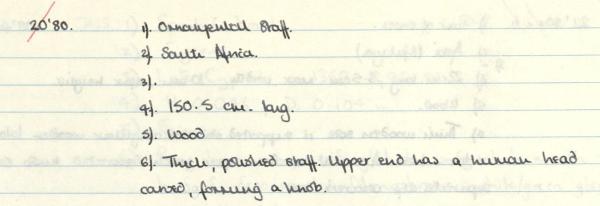 20'80. 1). Ornamental staff.
2). South Africa.
3).
4). 150.5 cm. long.
5). Wood
6). Thick, polished staff. Upper end has a human head
carved, forming a knob.